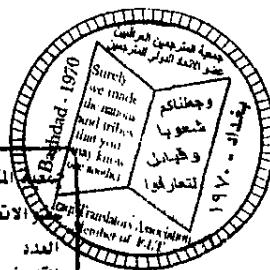 جمعية المترجمين العراقيين
عضو الاتحاد الدولي للمترجمين
Baghdad - 1970
Surely
we made
the nations
and tribes
that you
may know
one another
وجعلناكم
شعوبا
وقبائل
لتعارفوا
بغداد - ١٩٧٠
Iraqi Translators Association
Member of F.I.T
العدد